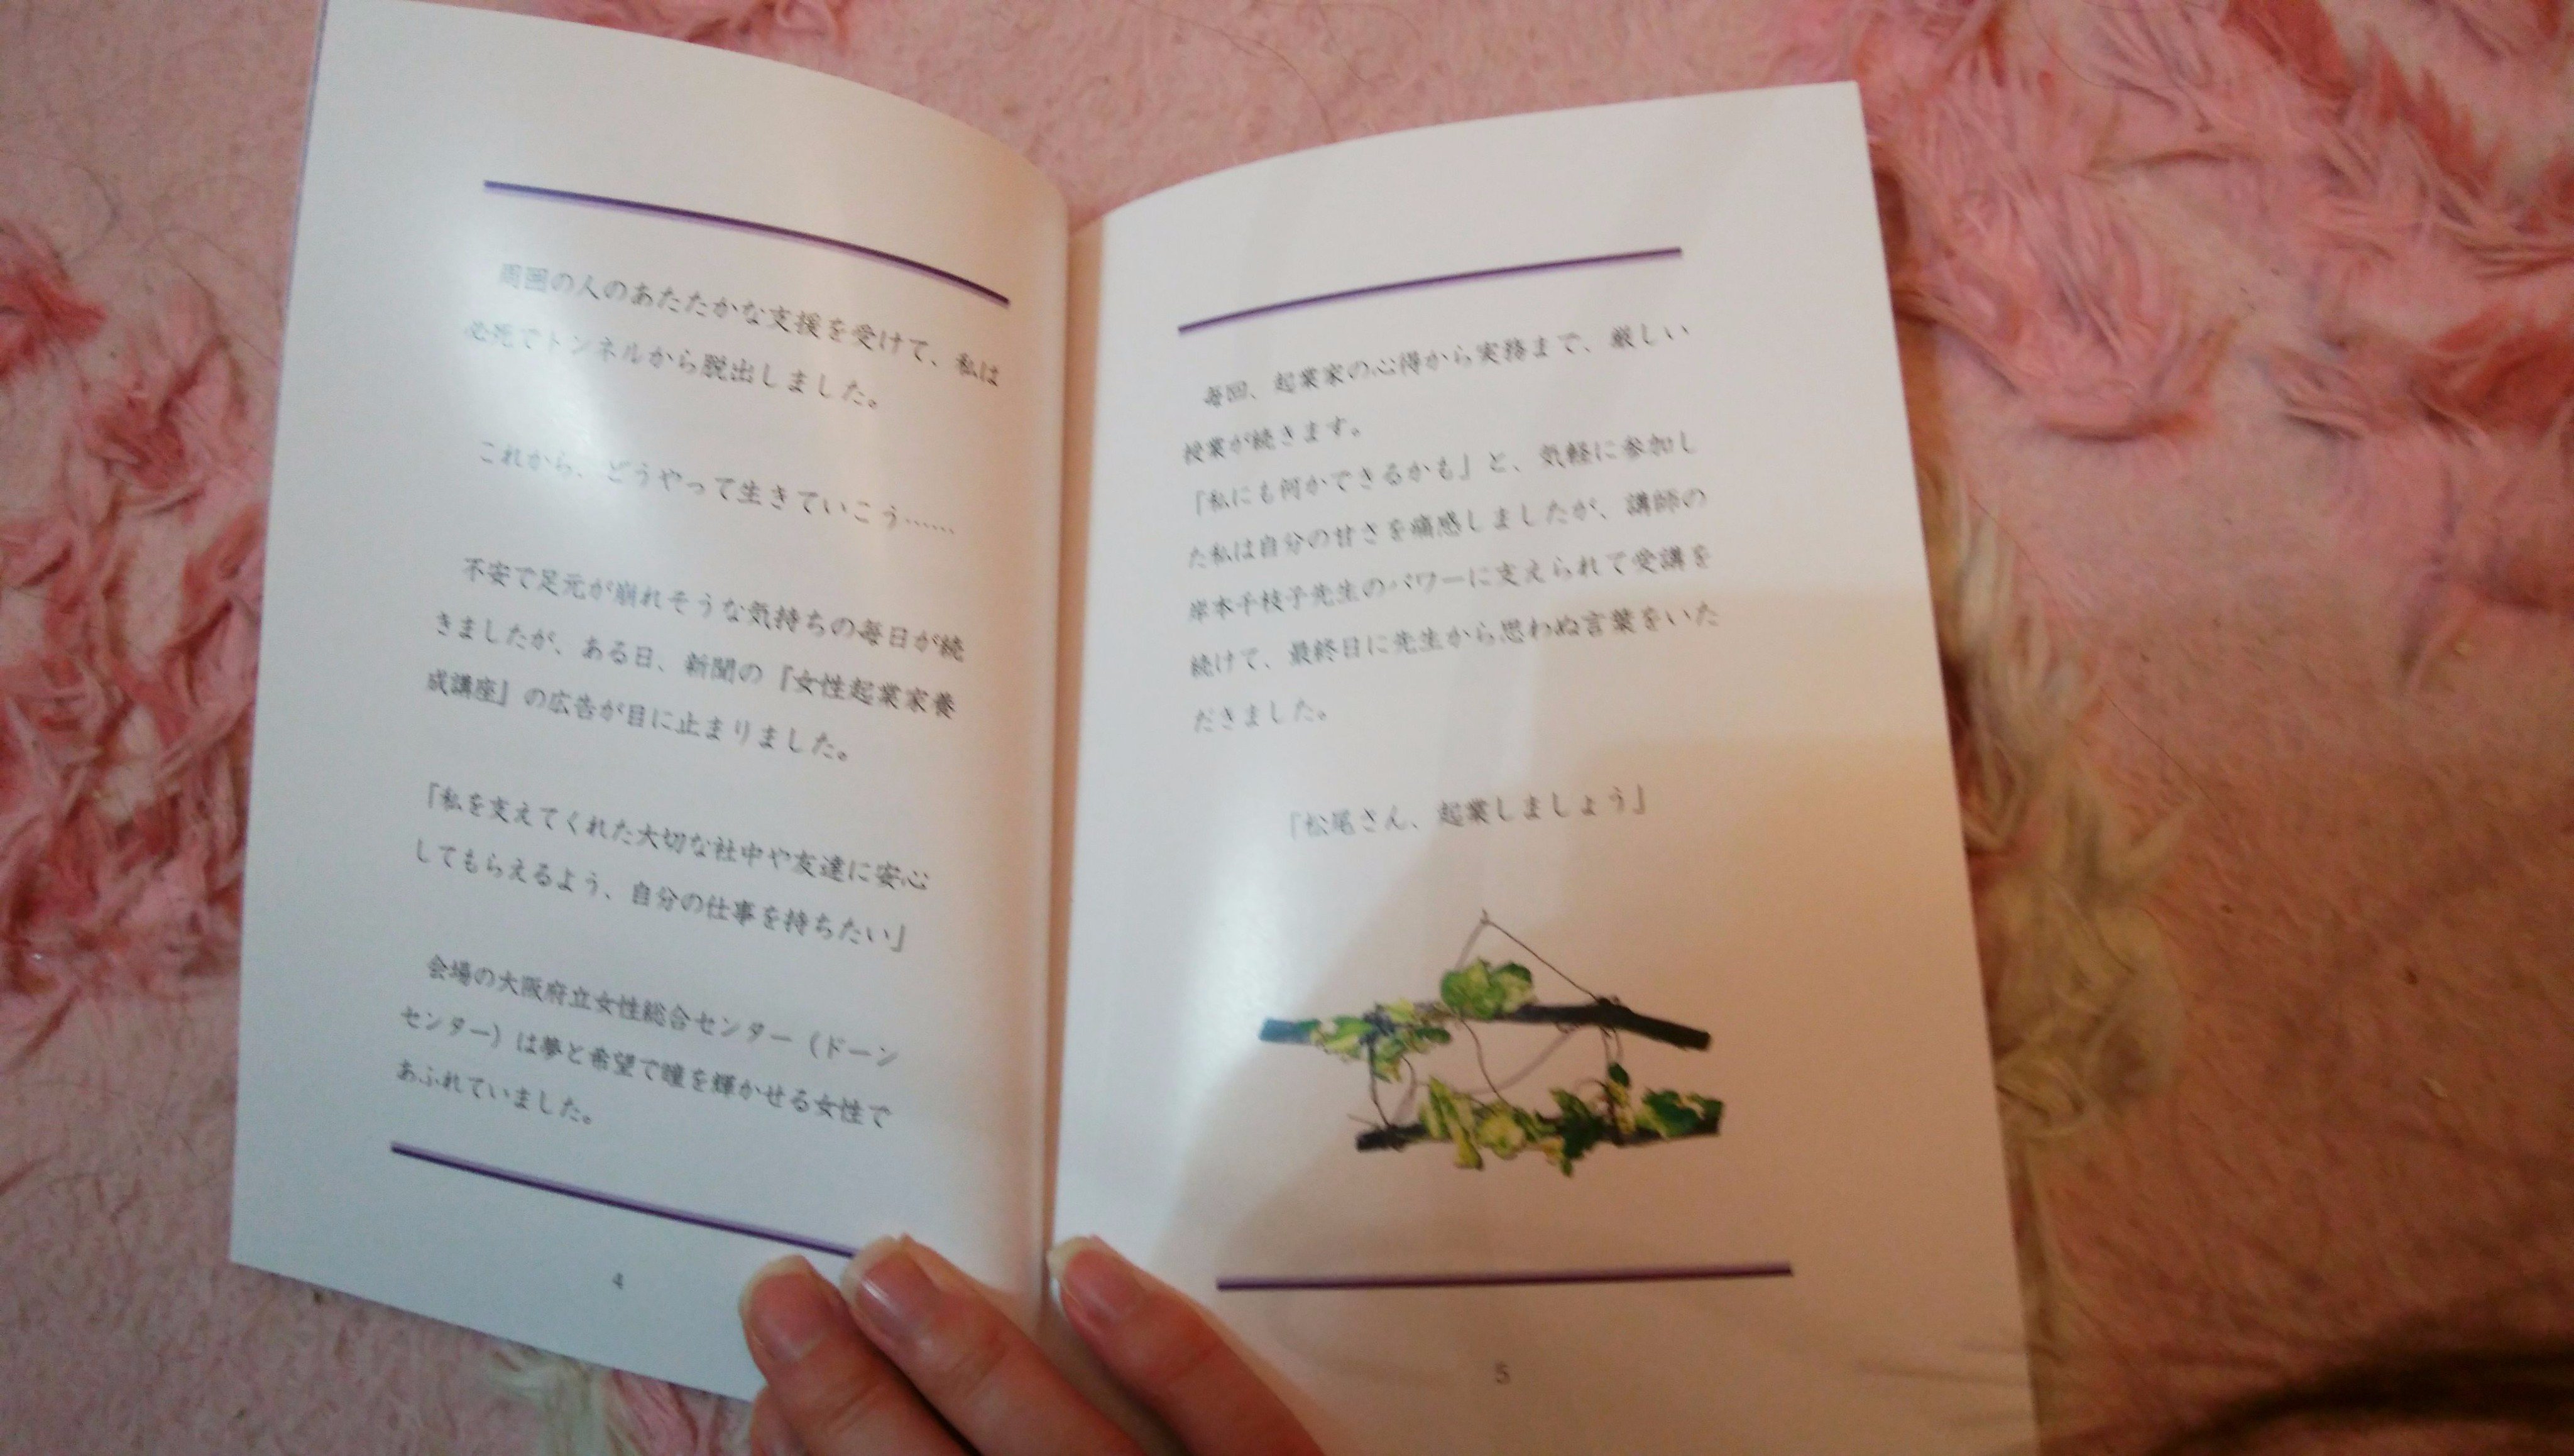 周囲の人のあたたかな支援を受けて、私は
必死でトンネルから脱出しました。
これから、どうやって生きていこう……
不安で足元が崩れそうな気持ちの毎日が続
きましたが、ある日、新聞の『女性起業家養
成講座』の広告が目に止まりました。
「私を支えてくれた大切な社中や友達に安心
してもらえるよう、自分の仕事を持ちたい」
会場の大阪府立女性総合センター（ドーン
センター）は夢と希望で瞳を輝かせる女性で
あふれていました。
4
毎回、起業家の心得から実務まで、厳しい
授業が続きます。
「私にも何かできるかも」と、気軽に参加し
た私は自分の甘さを痛感しましたが、講師の
岸本千枝子先生のパワーに支えられて受講を
続けて、最終日に先生から思わぬ言葉をいた
だきました。
「松尾さん、起業しましょう」
5